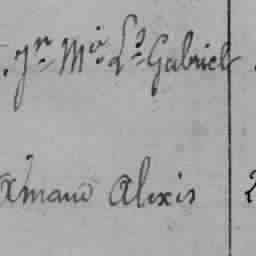 Jn Mio Lo Gabriel
Amand Alexis 2